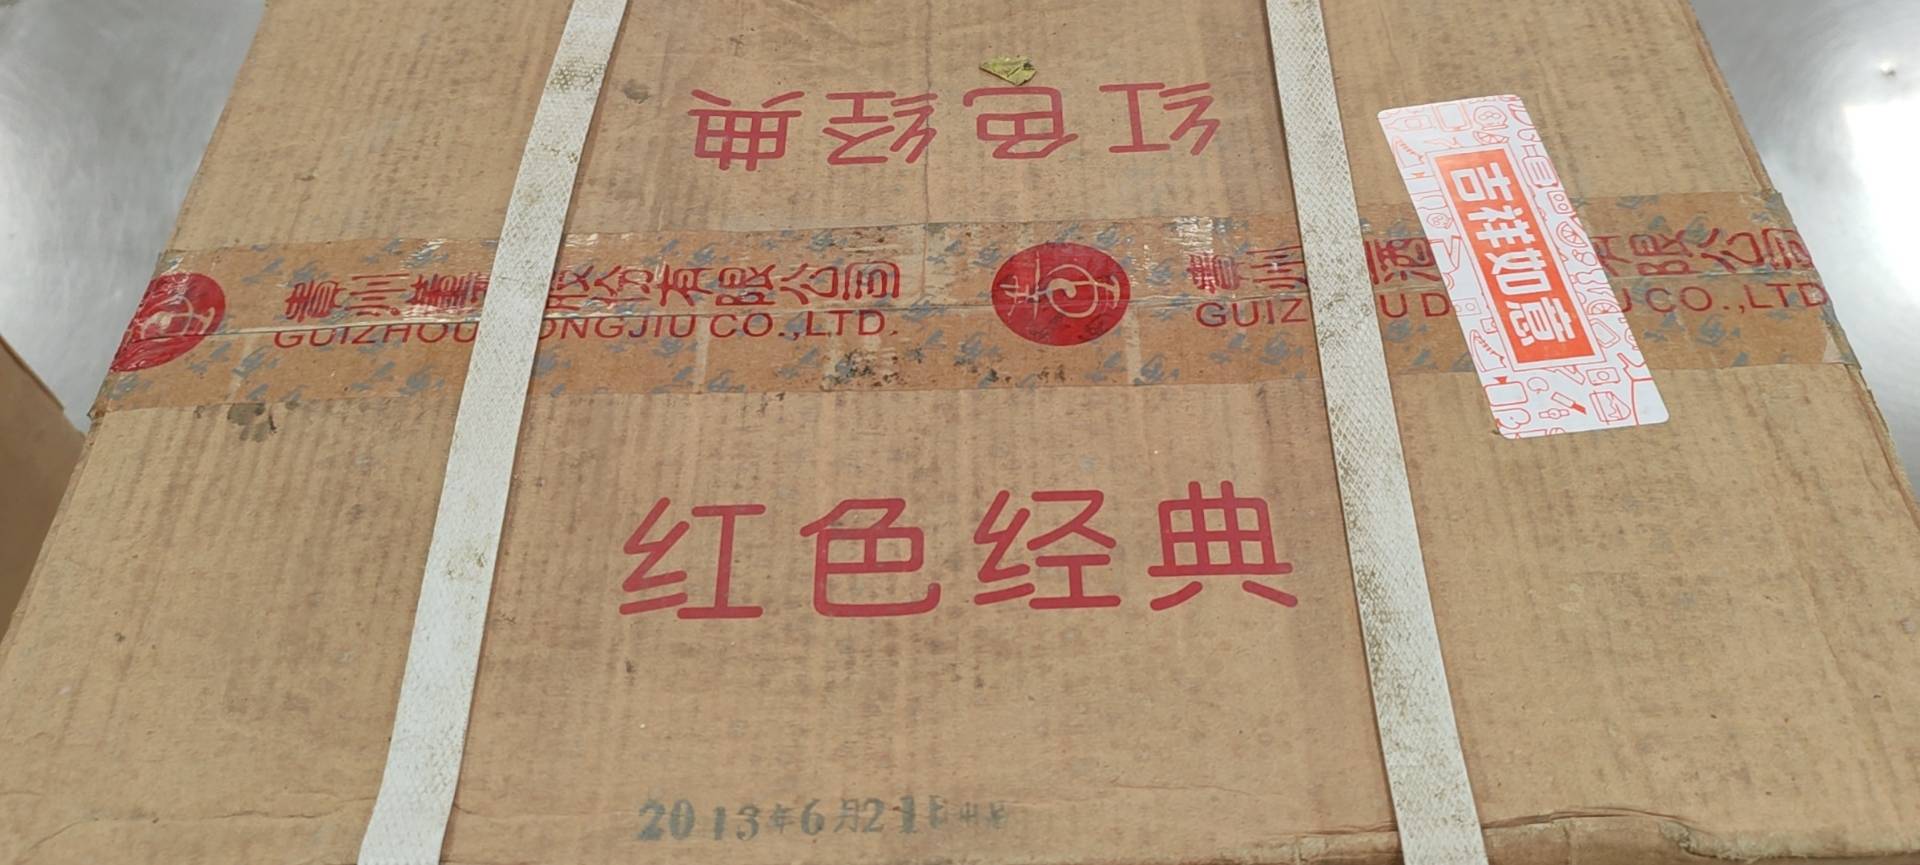 红色经典
贵州董酒股份有限公司
GUIZHOU DONGJIU CO.,LTD.
董
贵州 酒 有限公司
GUIZ OU D U CO.,LTD
吉祥如意
红色经典
2013年6月21日